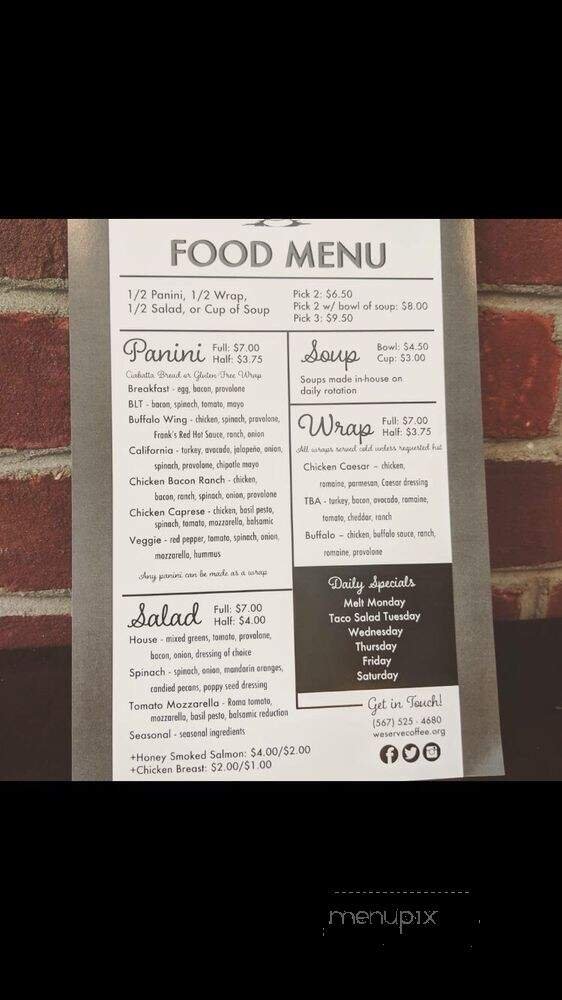 FOOD MENU
1/2 Panini, 1/2 Wrap,
1/2 Salad, or Cup of Soup
Pick 2: $6.50
Pick 2 w/ bowl of soup: $8.00
Pick 3: $9.50
Panini
Full: $7.00
Half: $3.75
Ciabatta Bread or Gluten-Free Wrap
Breakfast - egg, bacon, provolone
BLT - bacon, spinach, tomato, mayo
Buffalo Wing - chicken, spinach, provolone,
Frank's Red Hot Sauce, ranch, onion
California - turkey, avocado, jalapeño, onion,
spinach, provolone, chipotle mayo
Chicken Bacon Ranch - chicken,
bacon, ranch, spinach, onion, provolone
Chicken Caprese - chicken, basil pesto,
spinach, tomato, mozzarella, balsamic
Veggie - red pepper, tomato, spinach, onion,
mozzarella, hummus
Any panini can be made as a wrap
Salad
Full: $7.00
Half: $4.00
House - mixed greens, tomato, provolone,
bacon, onion, dressing of choice
Spinach - spinach, onion, mandarin oranges,
candied pecans, poppy seed dressing
Tomato Mozzarella - Roma tomato,
mozzarella, basil pesto, balsamic reduction
Seasonal - seasonal ingredients
+Honey Smoked Salmon: $4.00/$2.00
+Chicken Breast: $2.00/$1.00
Soup
Bowl: $4.50
Cup: $3.00
Soups made in-house on
daily rotation
Wrap
Full: $7.00
Half: $3.75
All wraps served cold unless requested hot
Chicken Caesar – chicken,
romaine, parmesan, Caesar dressing
TBA - turkey, bacon, avocado, romaine,
tomato, cheddar, ranch
Buffalo – chicken, buffalo sauce, ranch,
romaine, provolone
Daily Specials
Melt Monday
Taco Salad Tuesday
Wednesday
Thursday
Friday
Saturday
Get in Touch!
(567) 525 - 4680
weservecoffee.org
menupix